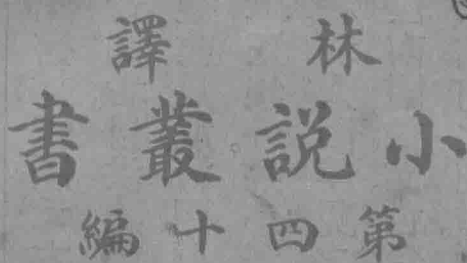 林譯
小説叢書
第四十編